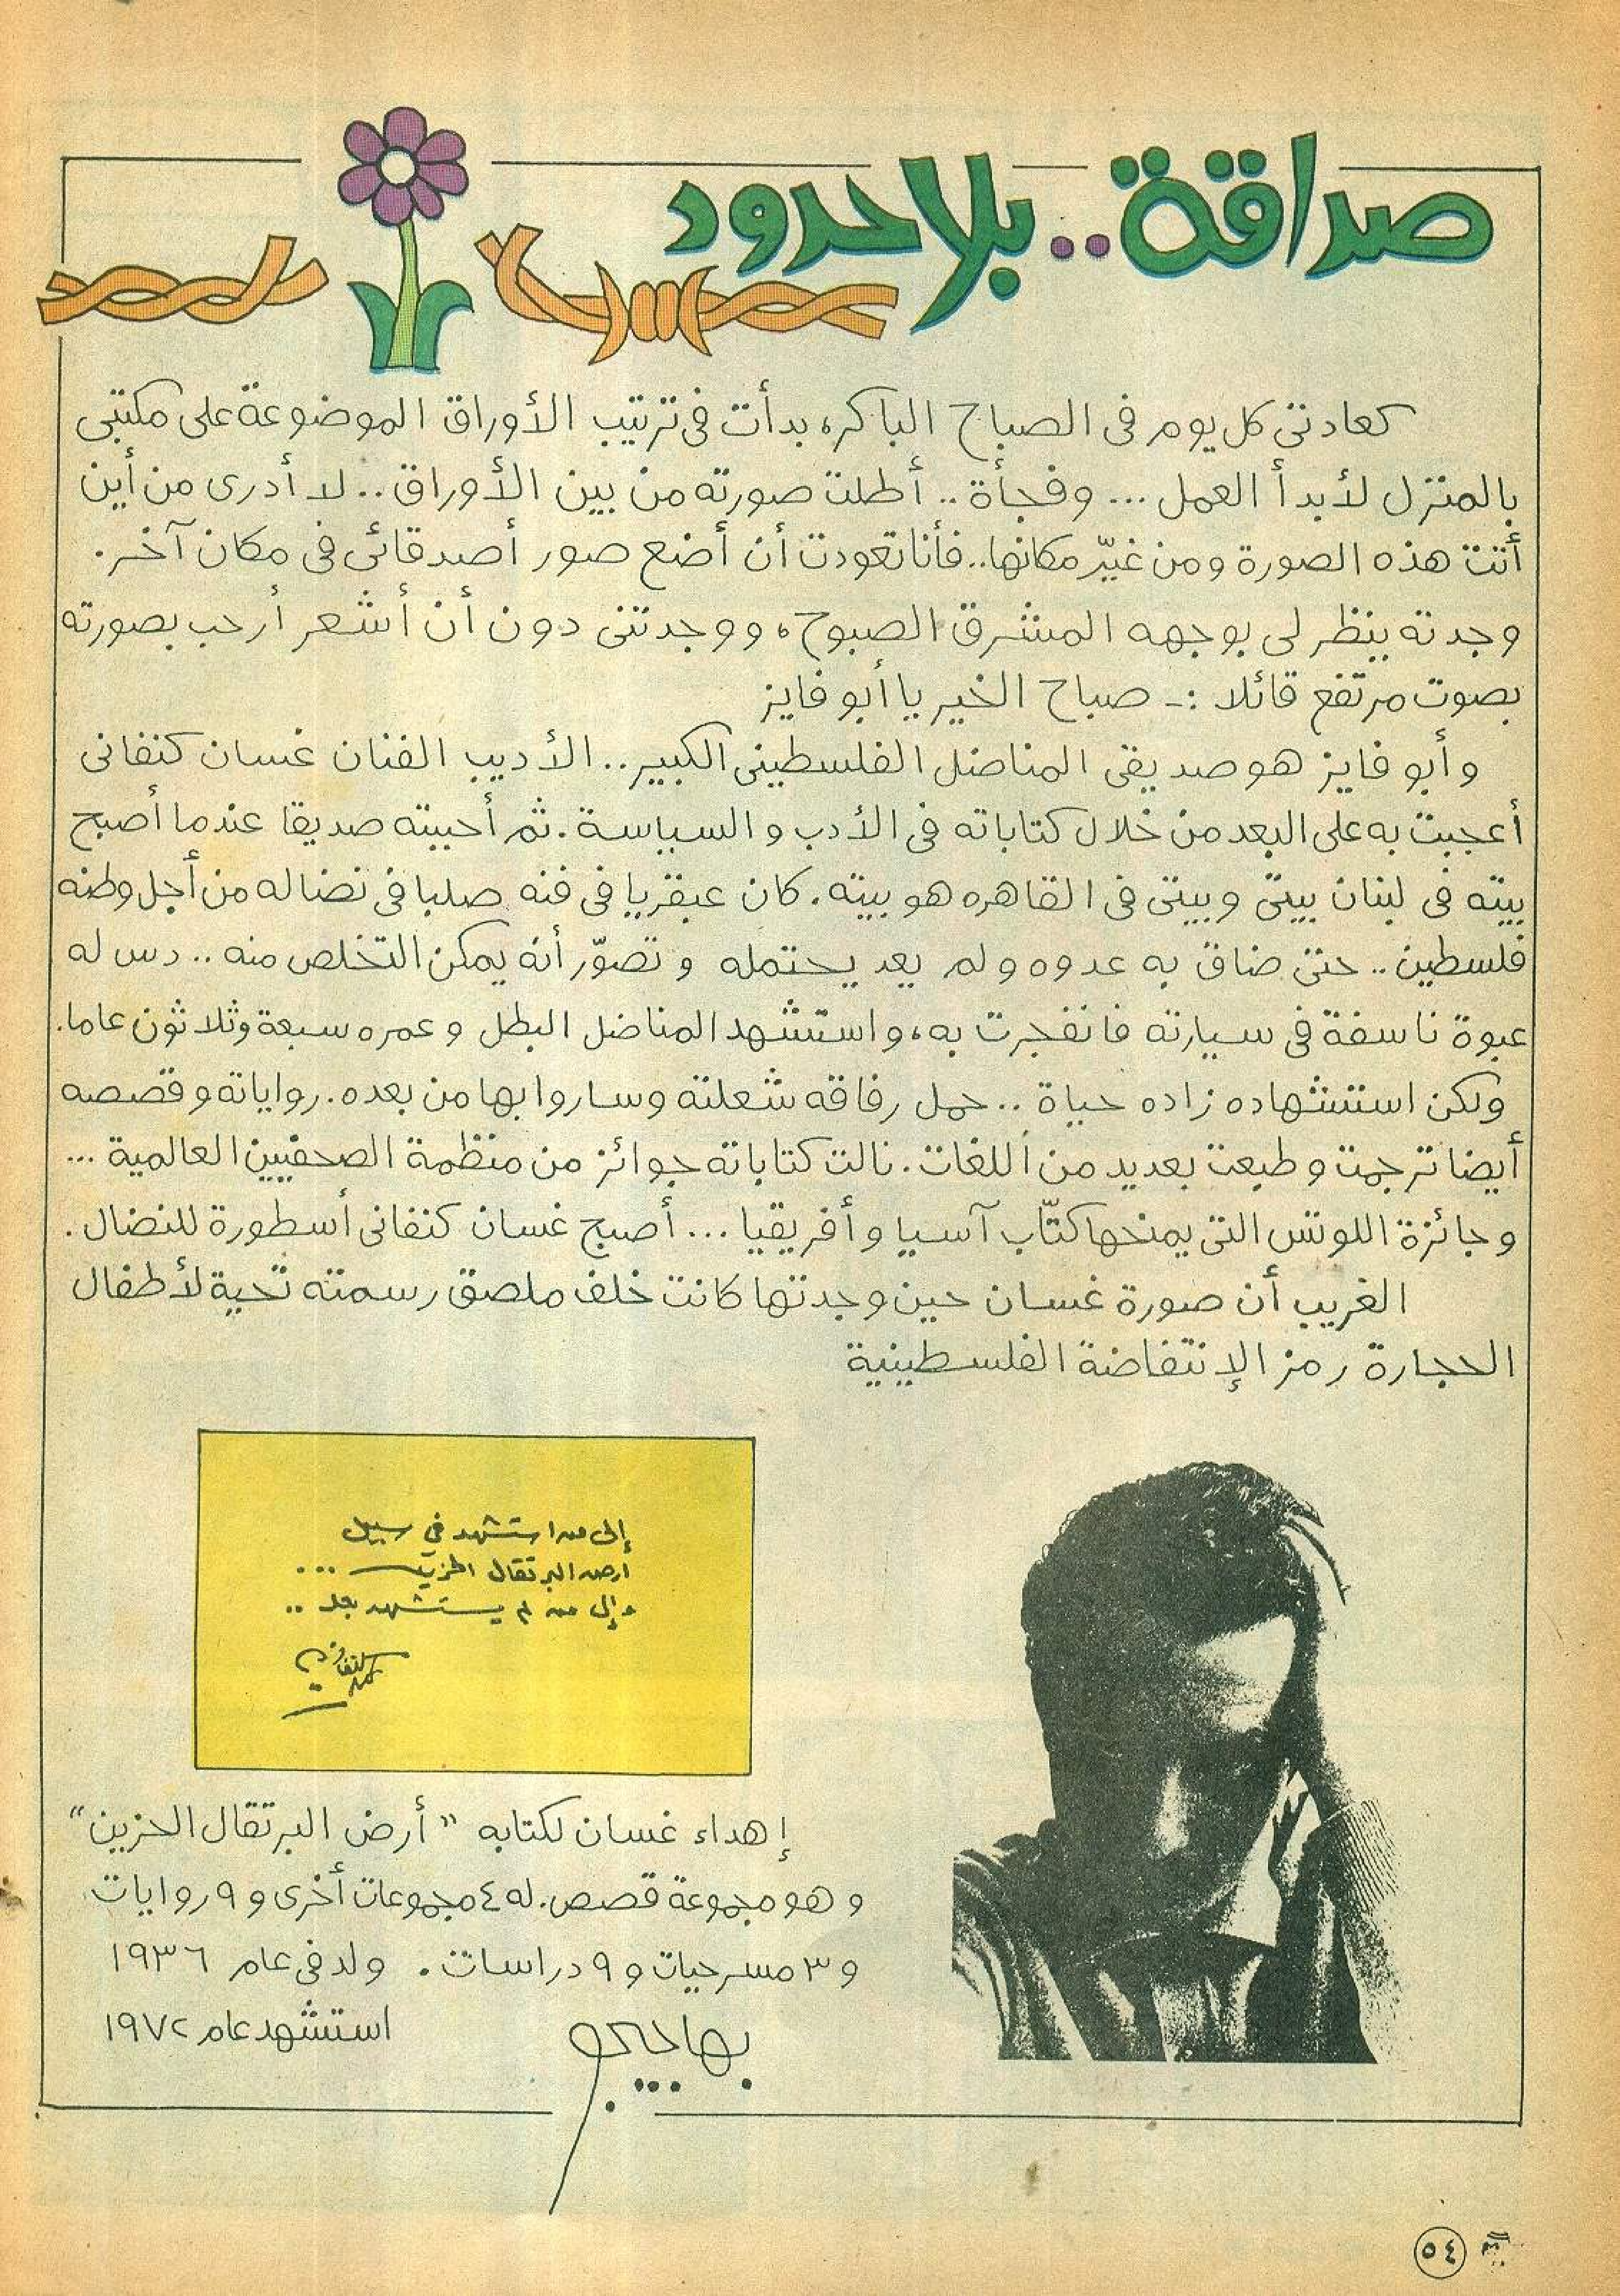 صداقة.. بلا حدود
كعادتى كل يوم فى الصباح الباكر، بدأت فى ترتيب الأوراق الموضوعة على مكتبى
بالمنزل لأبدأ العمل ... وفجأة .. أطلت صورته من بين الأوراق .. لا أدرى من أين
أتت هذه الصورة ومن غيّر مكانها.. فأنا تعودت أن أضع صور أصدقائى فى مكان آخر.
وجدته ينظر لى بوجهه المشرق الصبوح، ووجدتنى دون أن أشعر أرحب بصورته
بصوت مرتفع قائلا :- صباح الخير يا أبو فايز
وأبو فايز هو صديقى المناضل الفلسطينى الكبير.. الأديب الفنان غسان كنفانى
أعجبت به على البعد من خلال كتاباته فى الأدب و السياسة. ثم أحببته صديقا عندما أصبح
بيته فى لبنان بيتى وبيتى فى القاهره هو بيته. كان عبقريا فى فنه صلبا فى نضاله من أجل وطنه
فلسطين .. حتى ضاق به عدوه ولم يعد يحتمله و تصوّر أنه يمكن التخلص منه .. دس له
عبوة ناسفة فى سيارته فانفجرت به، واستشهد المناضل البطل وعمره سبعة وثلاثون عاما.
ولكن استشهاده زاده حياة .. حمل رفاقه شعلته وساروا بها من بعده. رواياته وقصصه
أيضا ترجمت وطبعت بعديد من اللغات. نالت كتاباته جوائز من منظمة الصحفيين العالمية ...
وجائزة اللوتس التى يمنحها كتّاب آسيا وأفريقيا ... أصبح غسان كنفانى أسطورة للنضال.
الغريب أن صورة غسان حين وجدتها كانت خلف ملصق رسمته تحية لأطفال
الحجارة رمز الإنتفاضة الفلسطينية
إلى من استشهد في سبيل
ارض البرتقال الحزين ...
وإلى من لم يستشهد بعد ..
إهداء غسان لكتابه "أرض البرتقال الحزين"
وهو مجموعة قصص. له ٤ مجموعات أخرى و ٩ روايات
و ٣ مسرحيات و ٩ دراسات. ولد فى عام ١٩٣٦
استشهد عام ١٩٧٢
بهاجيجو
٥٤